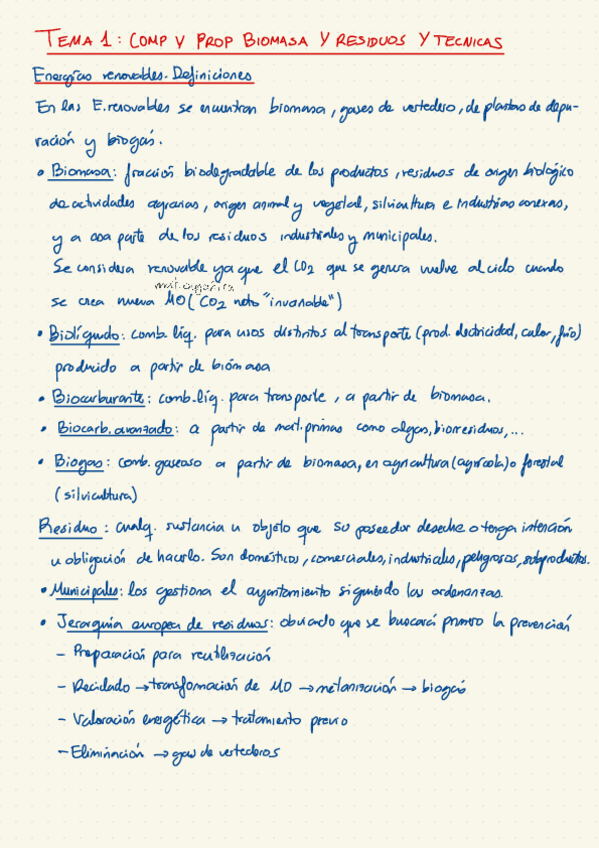 TEMA 1: COMP Y PROP BIOMASA Y RESIDUOS Y TECNICAS
Energías renovables. Definiciones
En las E.renovables se encuentran biomasa, gases de vertedero, de plantas de depu-
ración y biogás.
• Biomasa: fracción biodegradable de los productos, residuos de origen biológico
de actividades agrarias, origen animal y vegetal, silvicultura e industrias conexas,
y a esa parte de los residuos industriales y municipales.
Se considera renovable ya que el CO2 que se genera vuelve al ciclo cuando
mat.orgánica
se crea nueva MO (CO2 neto "invariable")
• Biolíquido: comb. líq. para usos distintos al transporte (prod. electricidad, calor, frío)
producido a partir de biomasa
• Biocarburante: comb.líq. para transporte, a partir de biomasa.
• Biocarb. avanzado: a partir de mat.primas como algas, biorresiduos, ...
• Biogas: comb. gaseoso a partir de biomasa, en agricultura (agrícola) o forestal
(silvicultura)
Residuo: cualq. sustancia u objeto que su poseedor deseche o tenga intención
u obligación de hacerlo. Son domésticos, comerciales, industriales, peligrosos, subproductos.
• Municipales: los gestiona el ayuntamiento siguiendo las ordenanzas.
• Jerarquía europea de residuos: obviando que se buscará primero la prevención
- Preparación para reutilización
- Reciclado → transformación de MO → metanización → biogás
- Valoración energética → tratamiento previo
- Eliminación → gas de vertederos